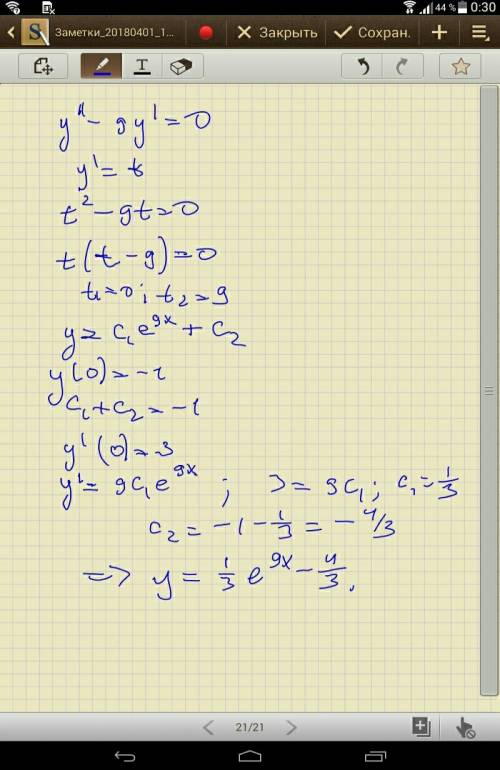 44 % 0:30
Заметки_20180401_1... Закрыть Сохран.
T
y'' - 9y' = 0
y' = t
t² - 9t = 0
t(t - 9) = 0
t₁ = 0; t₂ = 9
y = C₁e^9x + C₂
y(0) = -1
C₁ + C₂ = -1
y'(0) = 3
y' = 9C₁e^9x ; 3 = 9C₁; C₁ = 1/3
C₂ = -1 - 1/3 = -4/3
=> y = 1/3 e^9x - 4/3.
21/21